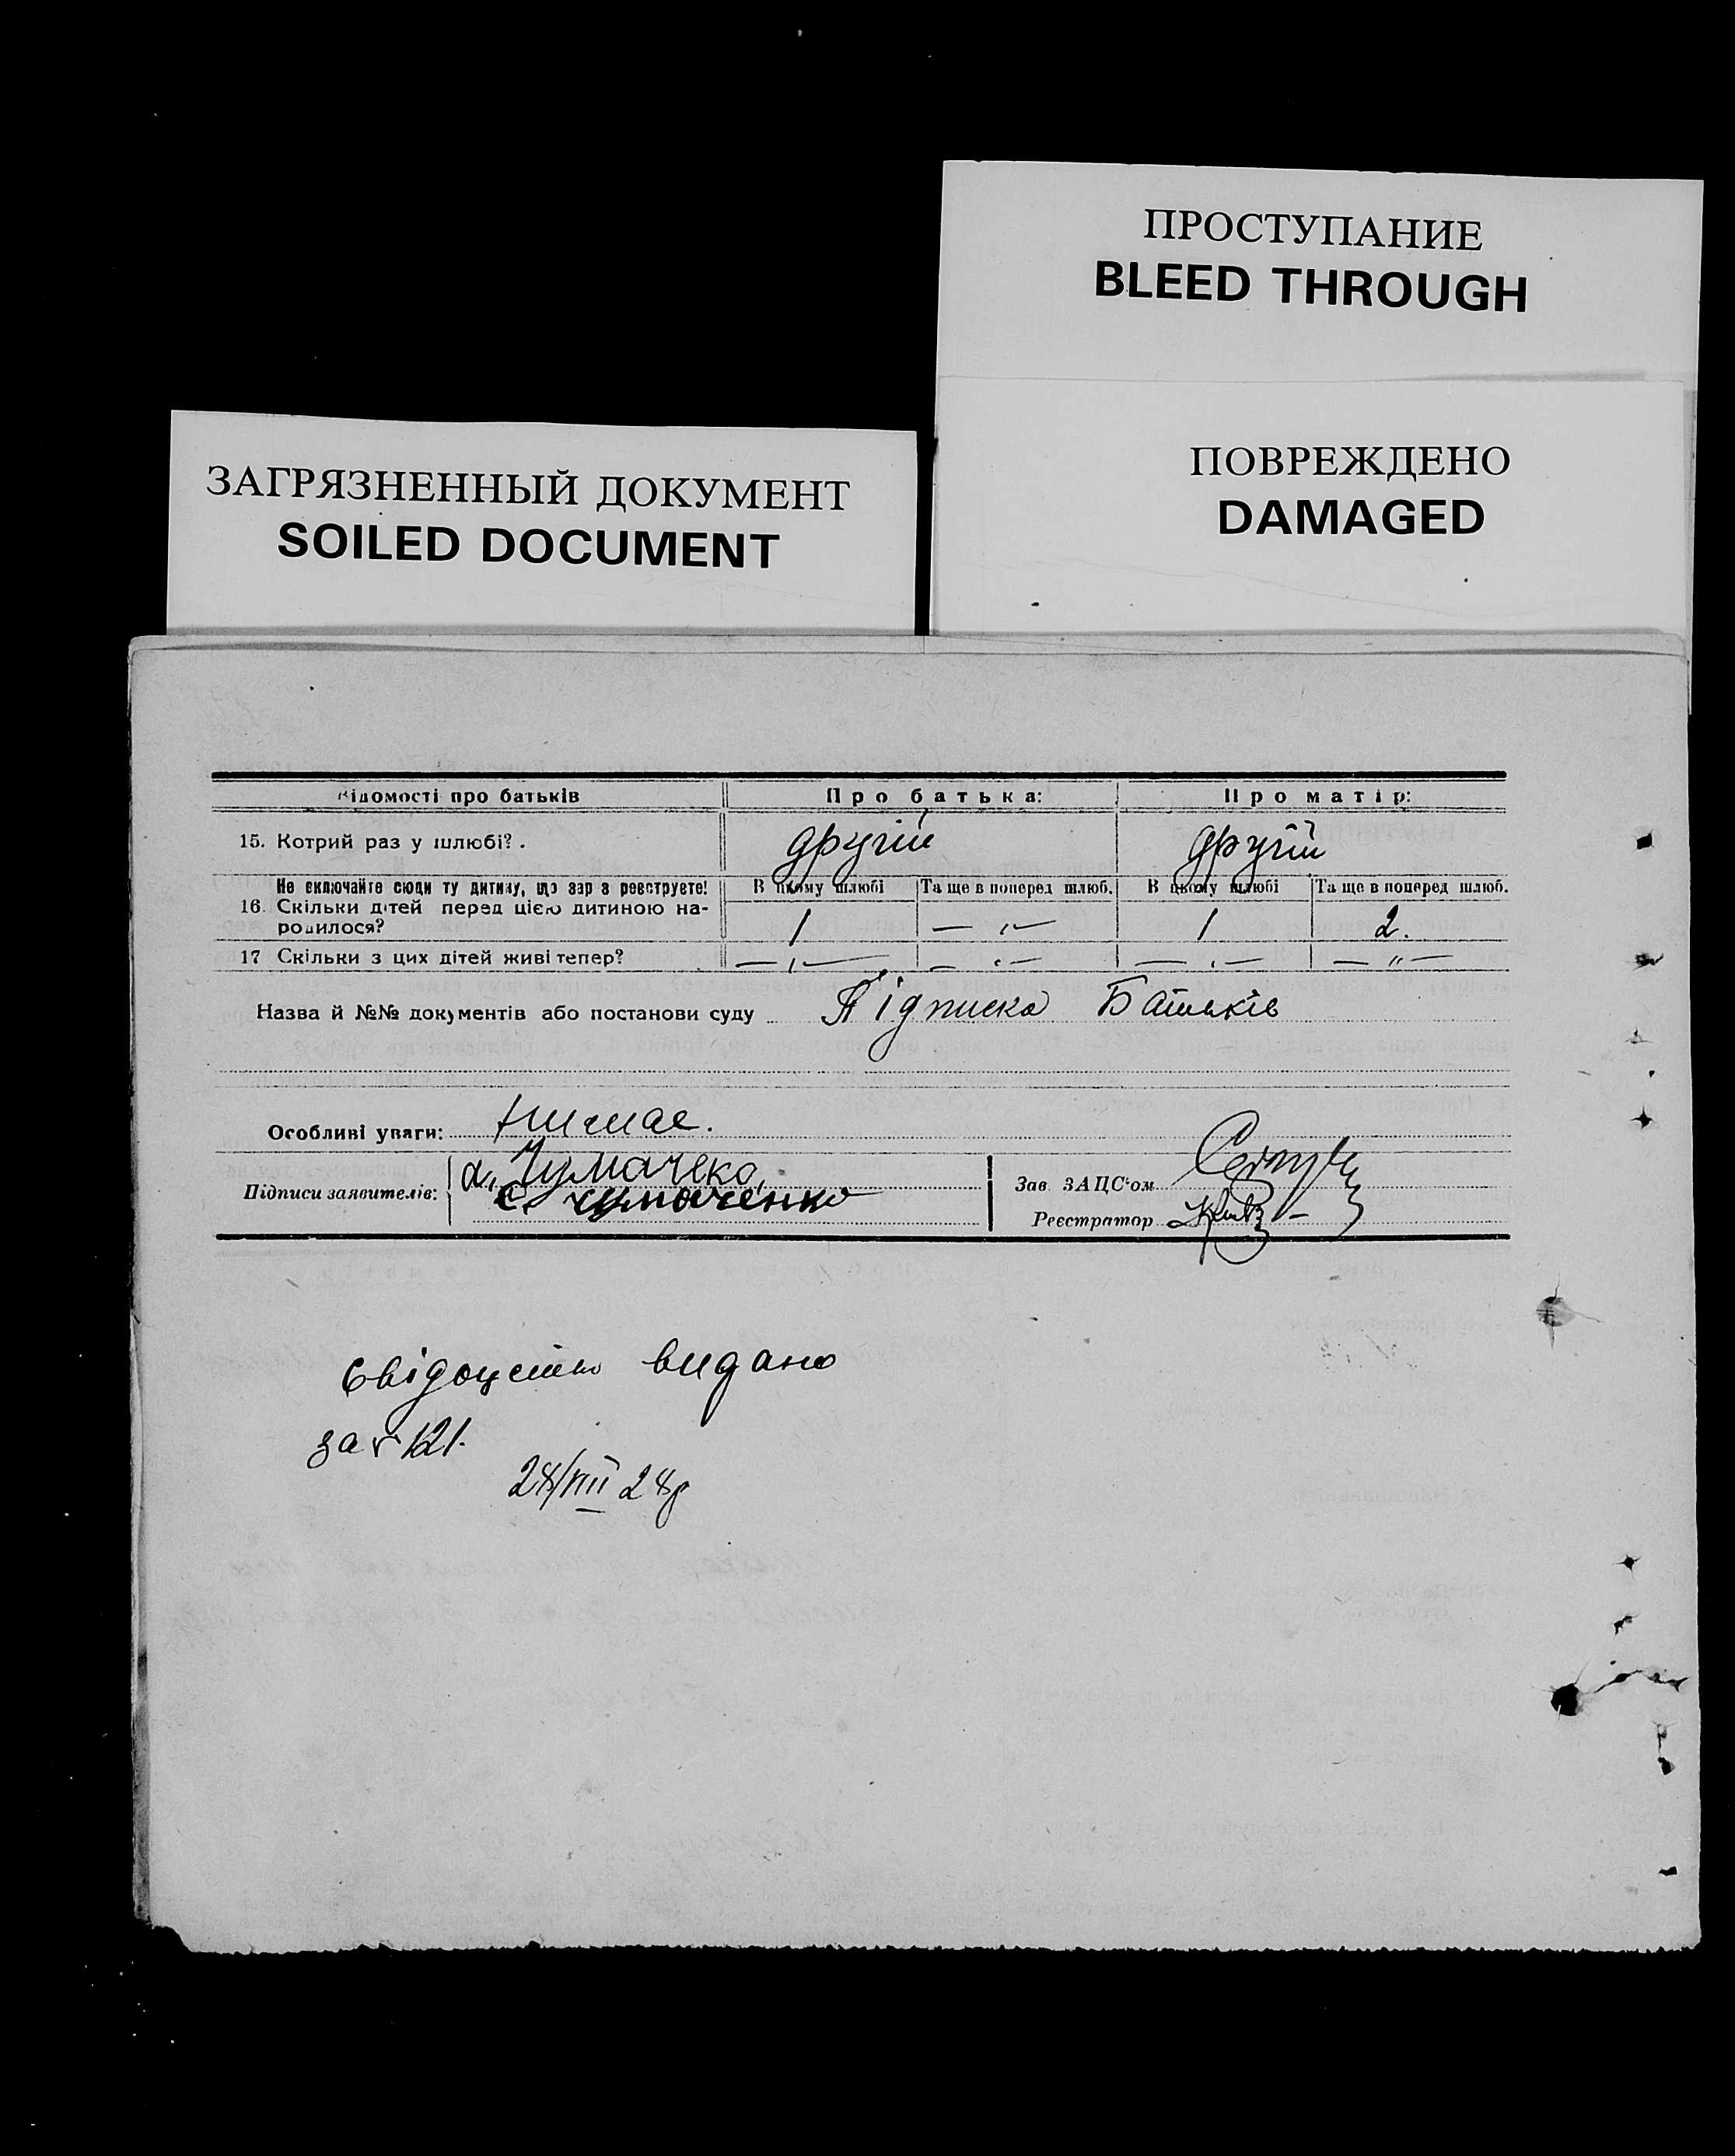 ПРОСТУПАНИЕ
BLEED THROUGH
ПОВРЕЖДЕНО
DAMAGED
ЗАГРЯЗНЕННЫЙ ДОКУМЕНТ
SOILED DOCUMENT
Відомості про батьків Про батька: Про матір:
15. Котрий раз у шлюбі? . другій другій
Не включайте сюди ту дитину, що зараз реєструєте! В цьому шлюбі Та ще в поперед шлюб. В цьому шлюбі Та ще в поперед шлюб.
16. Скільки дітей перед цією дитиною на- 1 — „ — 1 2.
родилося?
17 Скільки з цих дітей живі тепер? — „ — — „ — — „ — — „ —
Назва й №№ документів або постанови суду Підписка Батьків
Особливі уваги: Нимае.
Підписи заявителів: а. Чумачеко,
Є чумаченко
Зав ЗАЦС'ом
Реєстратор
Свідоцтво видано
за № 121.
28/VIII 28р